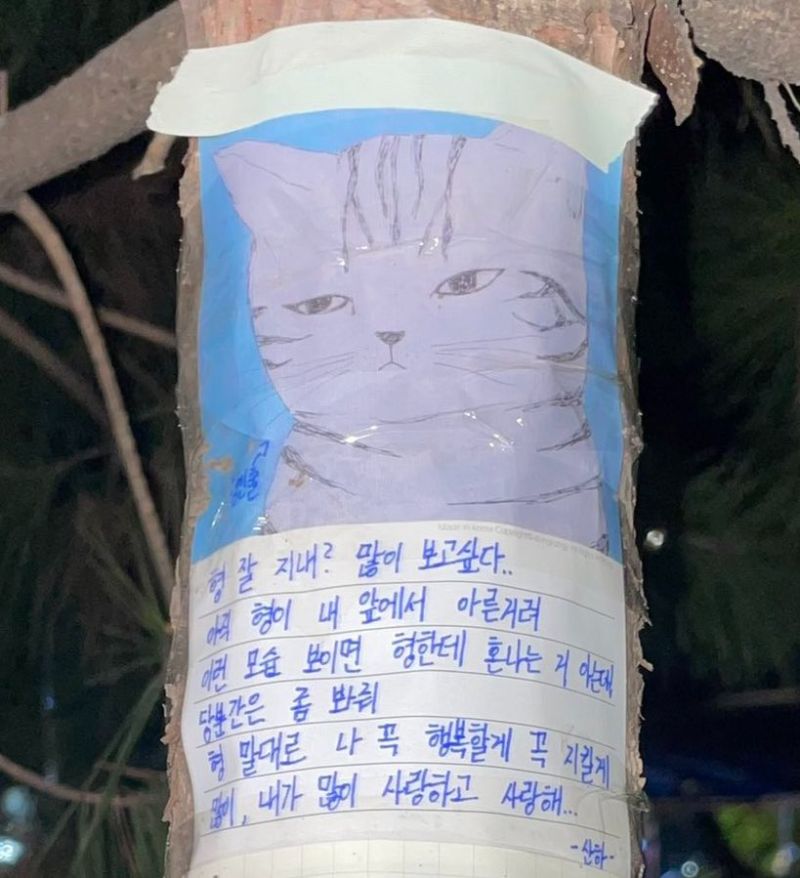 형 잘 지내? 많이 보고싶다..
아직 형이 내 앞에서 아른거려
이런 모습 보이면 형한테 혼나는 거 아는데
당분간은 좀 봐줘
형 말대로 나 꼭 행복할게 꼭 지킬게
많이, 내가 많이 사랑하고 사랑해...
-산하-